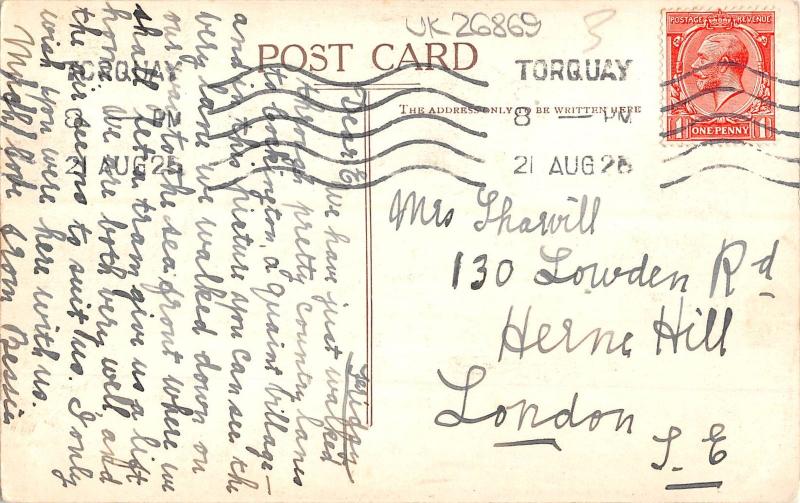 UK 26869
3
POST CARD
THE ADDRESS ONLY TO BE WRITTEN HERE
TORQUAY
8 — PM
21 AUG 25
TORQUAY
8 — PM
21 AUG 25
POSTAGE REVENUE
1 ONE PENNY 1
Mrs Sharvill
130 Lowden Rd
Herne Hill
London
S. E
Friday
Dear E we have just walked
through pretty country lanes
to Cockington, a quaint village —
and in this picture you can see the
very lane we walked down on
our way to the sea front where we
shall get a tram give us a lift
home. We are both very well and
the air seems to suit us. I only
wish you were here with us.
Much love from Bessie